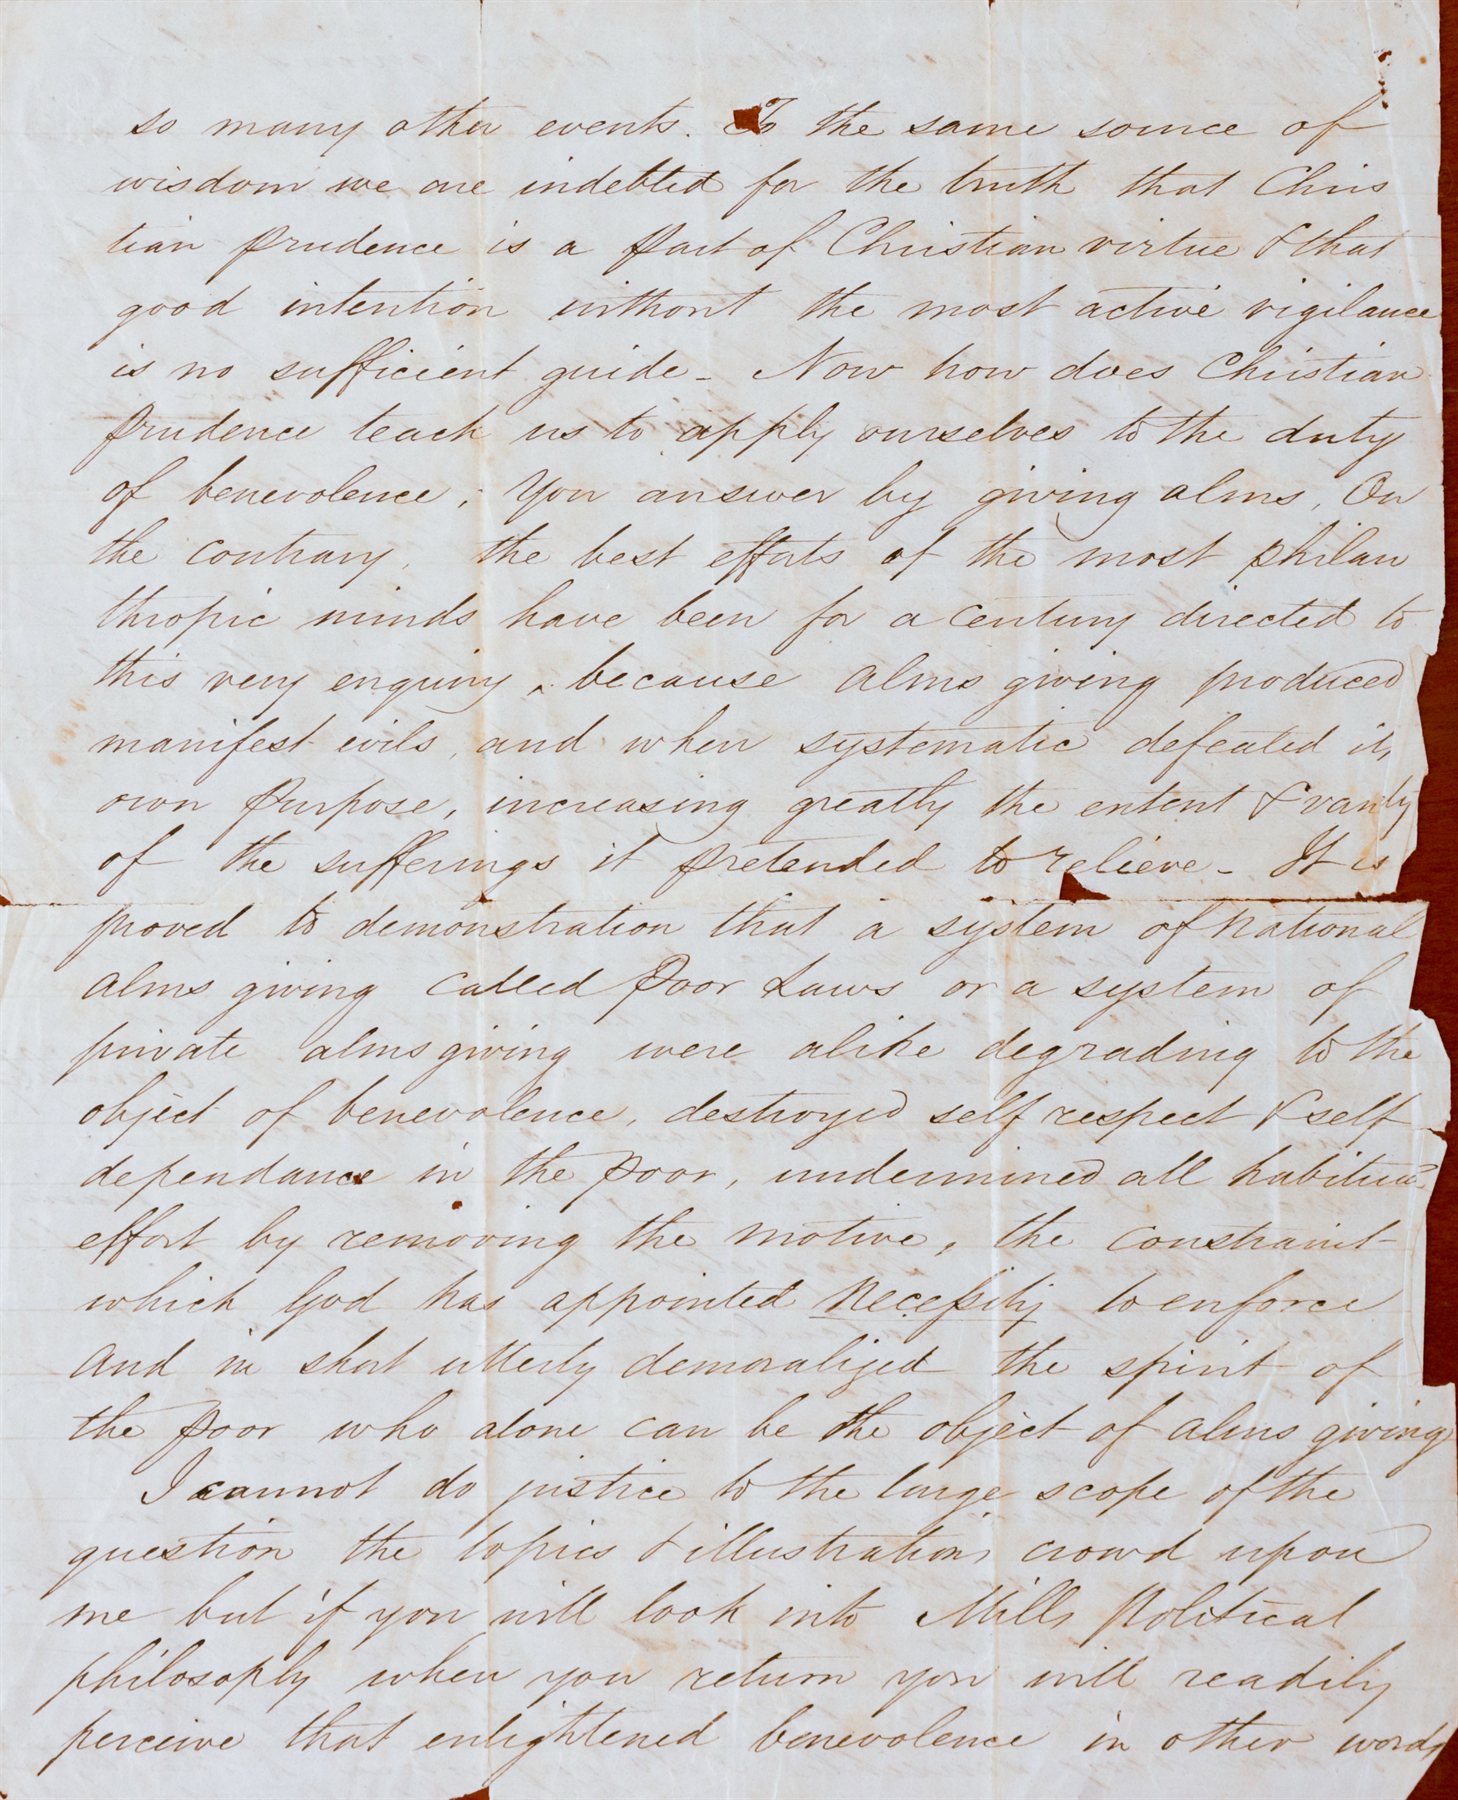 so many other events. To the same source of
wisdom we are indebted for the truth that Chris
tian prudence is a part of Christian virtue & that
good intention without the most active vigilance
is no sufficient guide - Now how does Christian
prudence teach us to apply ourselves to the duty
of benevolence; You answer by giving alms, On
the contrary, the best efforts of the most philan
thropic minds have been for a century directed to
this very enquiry, because alms giving produced
manifest evils, and when systematic defeated its
own purpose, increasing greatly the extent & variety
of the sufferings it pretended to relieve - It is
proved to demonstration that a system of National
alms giving called Poor Laws or a system of
private alms giving were alike degrading to the
object of benevolence, destroyed self respect & self
dependance in the poor, undermined all habitual
effort by removing the motive, the constraint
which God has appointed necessity to enforce
and in short utterly demoralized the spirit of
the poor who alone can be the object of alms giving
I cannot do justice to the large scope of the
question the topics & illustrations crowd upon
me but if you will look into Mills Political
philosophy when you return you will readily
perceive that enlightened benevolence in other words